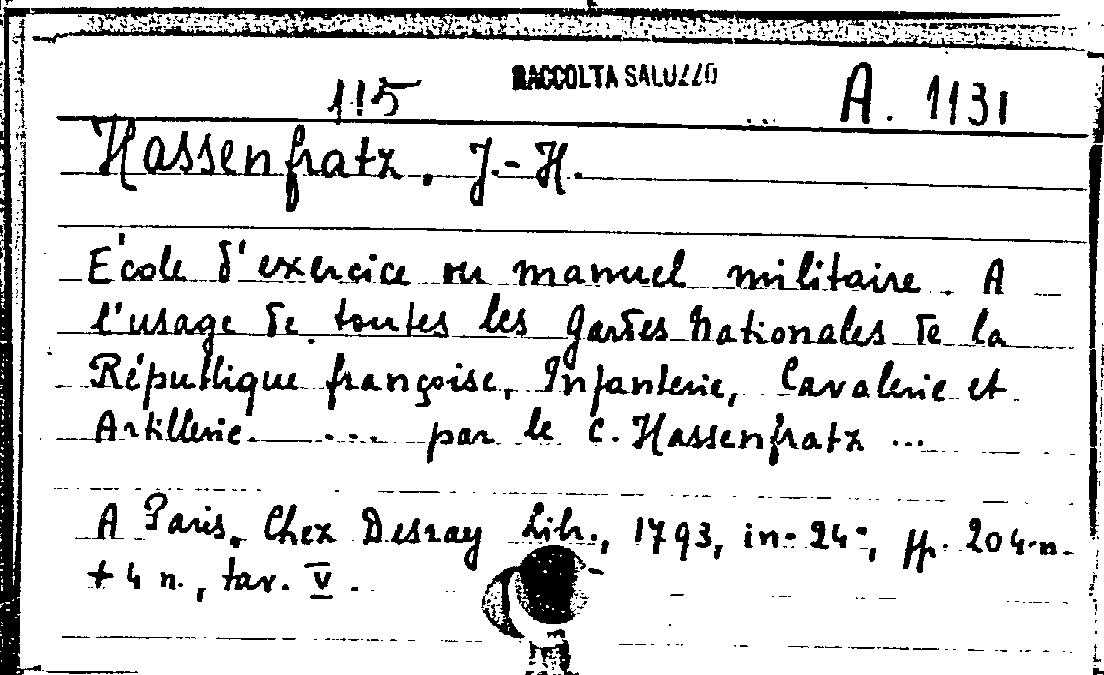 RACCOLTA SALUZZO
115 ... A. 1131
Hassenfratz, J.-H.
École d'exercice ou manuel militaire. A
l'usage de toutes les gardes Nationales de la
République françoise, Infanterie, Cavalerie et
Artillerie. .... par le C. Hassenfratz ...
A Paris, Chez Desray Libr., 1793, in-24°, pp. 204 n.
+ 4 n., tav. V.